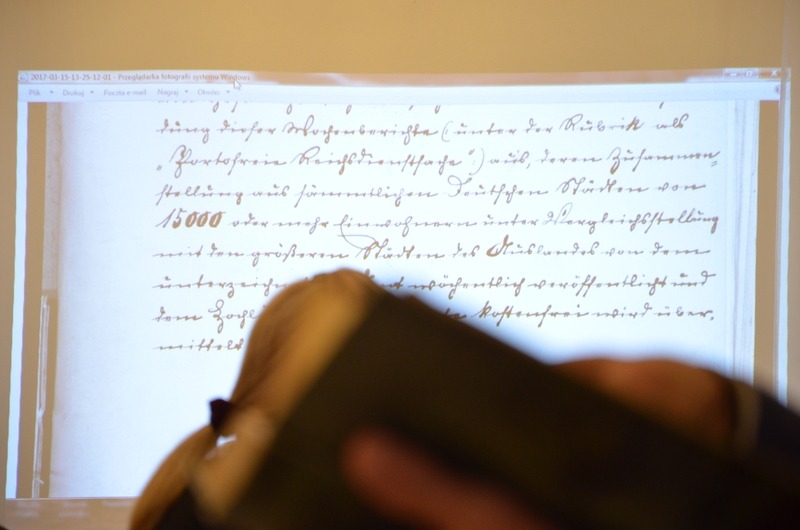 2017-03-15-13-25-12-01 - Przeglądarka fotografii systemu Windows
Plik Drukuj Poczta e-mail Nagraj Otwórz
dung dieser Wochenberichte (unter der Rubrik als
„Portofreie Reichsdienstsache“) aus, deren Zusammen-
stellung aus sämmtlichen Deutschen Städten von
15000 oder mehr Einwohnern unter Vergleichsstellung
mit den größeren Städten des Auslandes von dem
wöchentlich veröffentlicht und
dem kostenfrei wird über-
mittelt